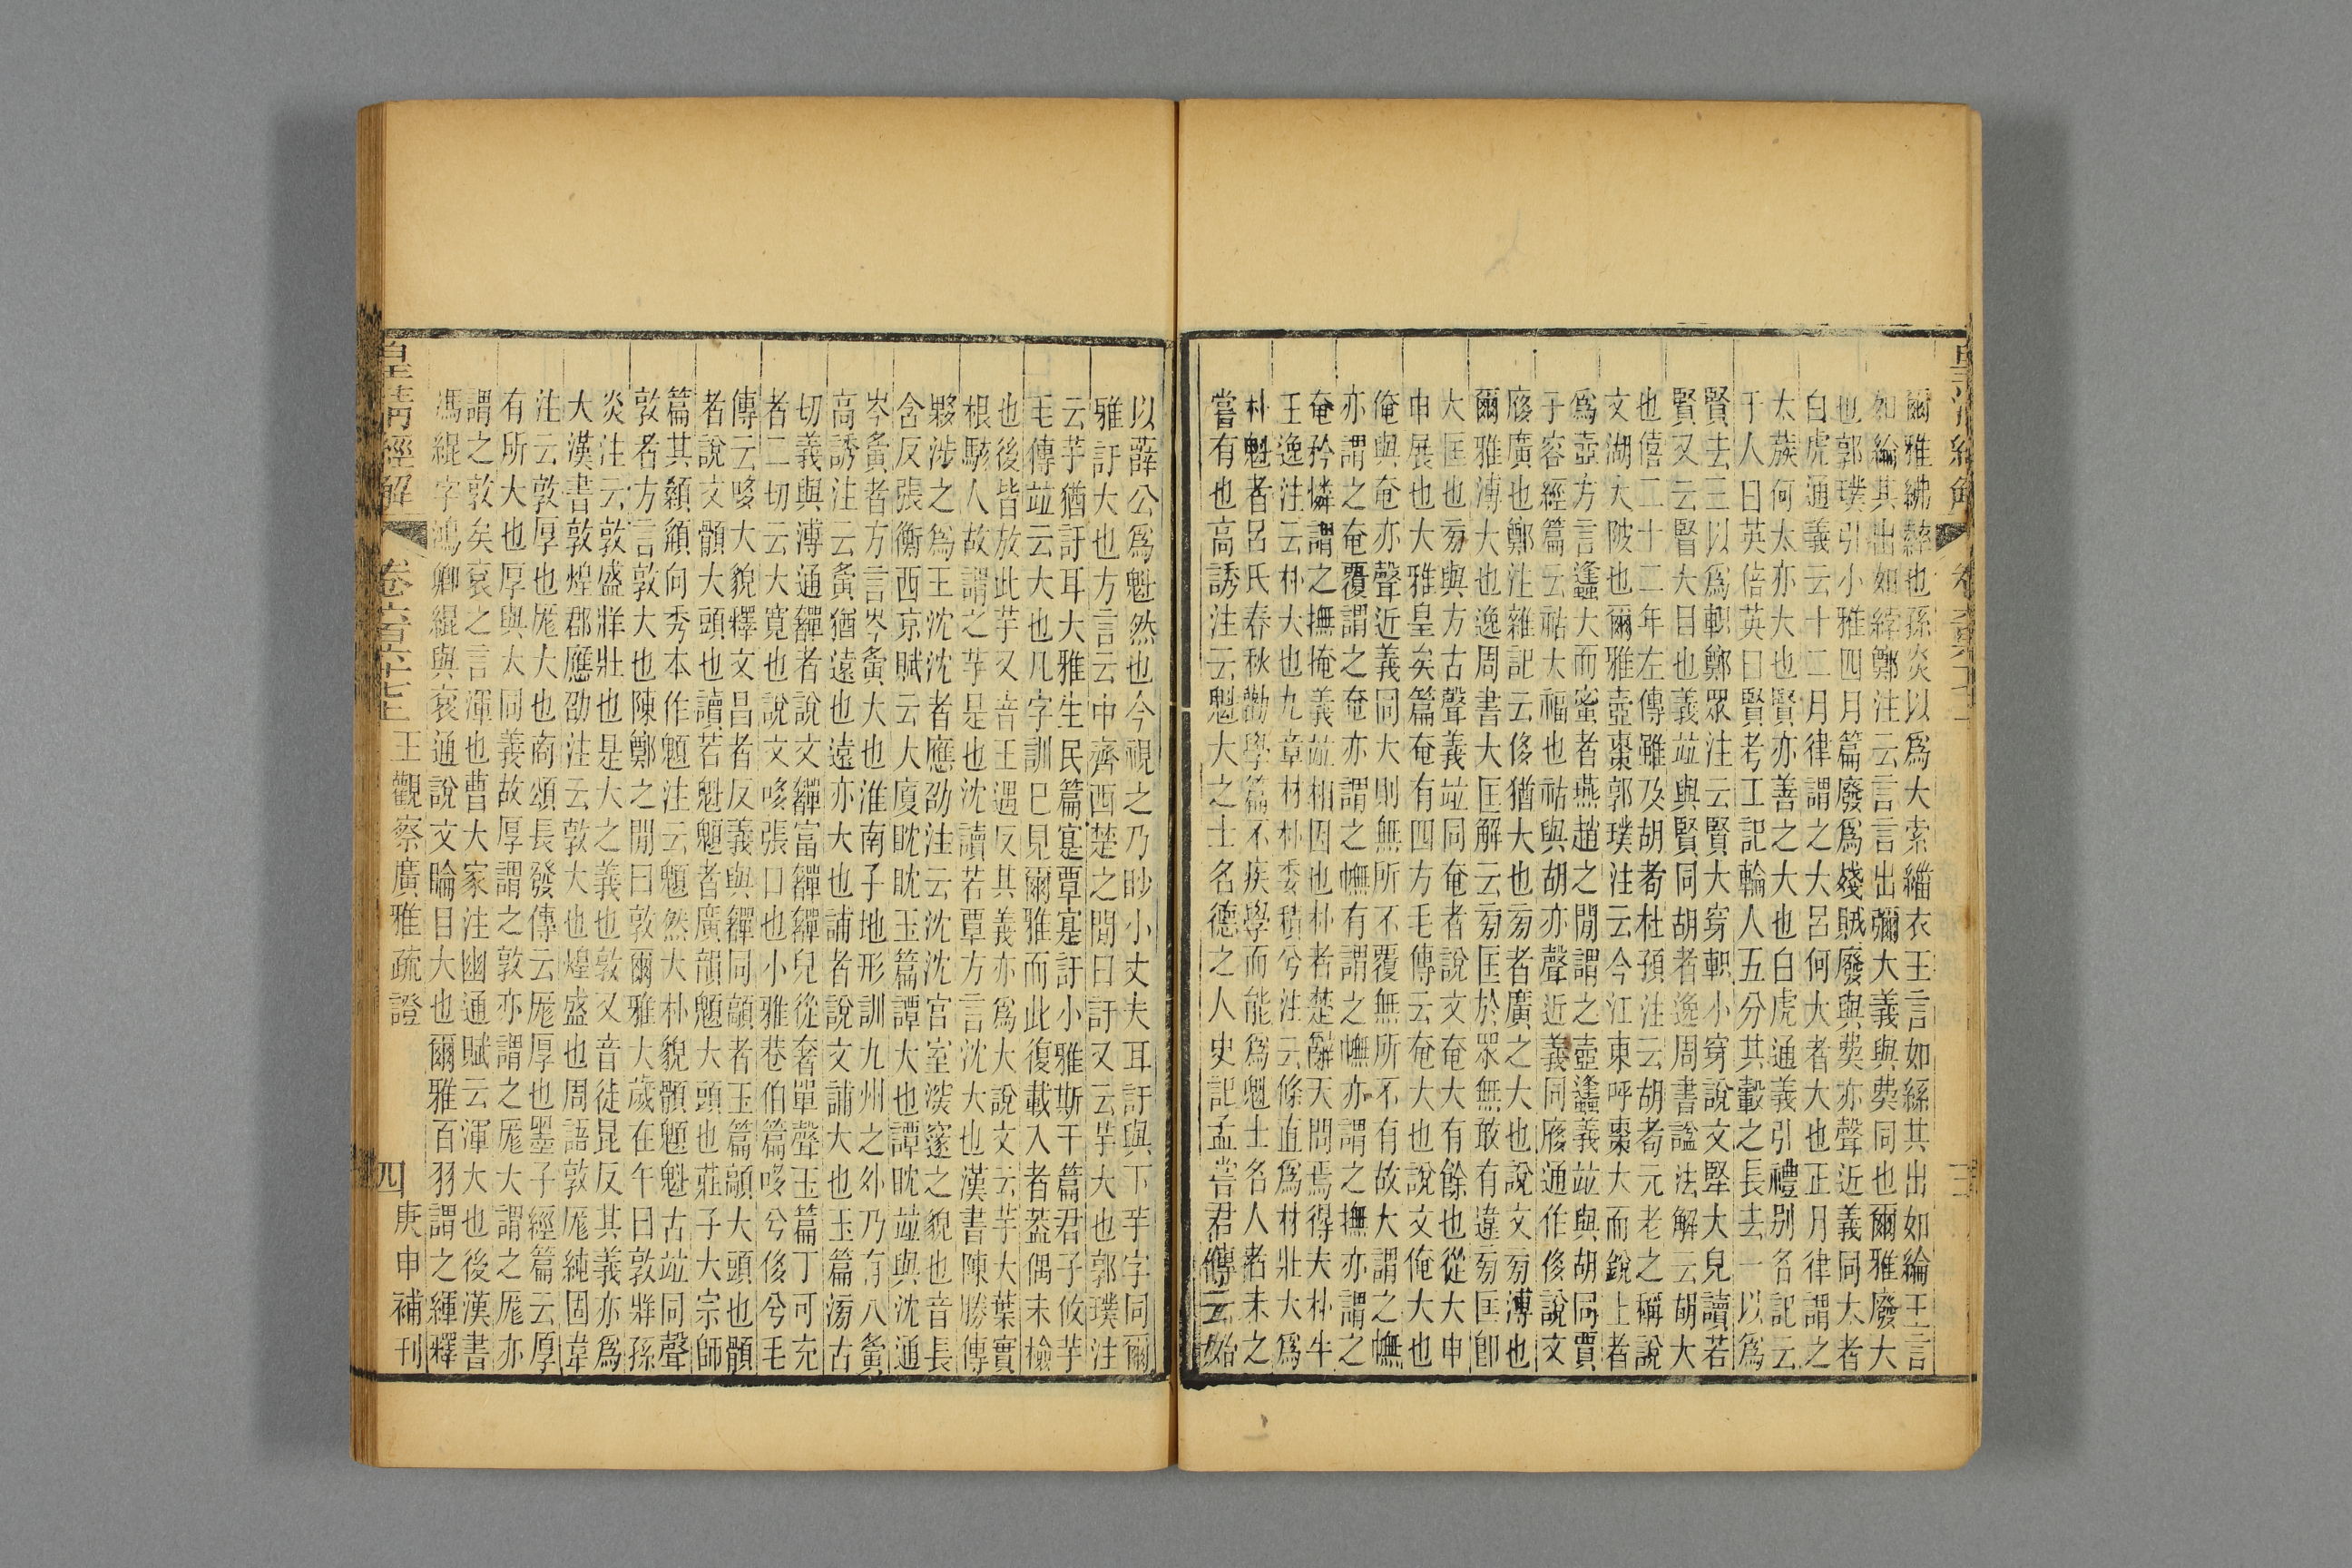 爾雅紼䋎也孫炎以爲大索緇衣王言如絲其出如綸王言
如綸其出如綍鄭注云言言出彌大義與奘同也爾雅廢大
也郭璞引小雅四月篇廢爲殘賊廢與奘亦聲近義同太者
白虎通義云十二月律謂之大呂何大者大也正月律謂之
太蔟何太亦大也賢亦善之大也白虎通義引禮別名記云
千人曰英倍英曰賢考工記輪人五分其轂之長去一以爲
賢去三以爲軹鄭眾注云賢大穿軹小穿說文臤大皃讀若
賢又云臤大目也義竝與賢同胡者逸周書諡法解云胡大
也僖二十二年左傳雖及胡耇杜預注云胡耇元老之稱說
文湖大陂也爾雅壺棗郭璞注云今江東呼棗大而銳上者
爲壺方言蠭大而蜜者燕趙之閒謂之壺蠭義竝與胡同賈
子容經篇云祜大福也祜與胡亦聲近義同㢋通作侈說文
㢋廣也鄭注雜記云侈猶大也㫄者廣之大也說文㫄溥也
爾雅溥大也逸周書大匡解云㫄匡於眾無敢有違㫄匡卽
大匡也㫄與方古聲義竝同奄者說文奄大有餘也從大申
申展也大雅皇矣篇奄有四方毛傳云奄大也說文俺大也
俺與奄亦聲近義同大則無所不覆無所不有故大謂之幠
亦謂之奄覆謂之奄亦謂之幠有謂之幠亦謂之撫亦謂之
奄矜憐謂之撫掩義竝相因也朴者楚辭天問焉得夫朴牛
王逸注云朴大也九章材朴委積兮注云條直爲材壯大爲
朴魁者呂氏春秋勸學篇不疾學而能爲魁士名人者未之
嘗有也高誘注云魁大之士名德之人史記孟嘗君傳云始
以薛公爲魁然也今視之乃眇小丈夫耳訏與下芋字同爾
雅訏大也方言云中齊西楚之閒曰訏又云芋大也郭璞注
云芋猶訏耳大雅生民篇寔覃寔訏小雅斯干篇君子攸芋
毛傳竝云大也凡字訓已見爾雅而此復載入者蓋偶未檢
也後皆放此芋又音王遇反其義亦爲大說文云芋大葉實
根駭人故謂之芋是也沈讀若覃方言沈大也漢書陳勝傳
夥涉之爲王沈沈者應劭注云沈沈宮室深邃之貌也音長
含反張衡西京賦云大廈耽耽玉篇譚大也譚耽竝與沈通
岑夤者方言岑夤大也淮南子地形訓九州之外乃有八夤
高誘注云夤猶遠也遠亦大也誧者說文誧大也玉篇㴑古
切義與溥通奲者說文奲富奲奲皃從奢單聲玉篇丁可充
者二切云大寬也說文哆張口也小雅巷伯篇哆兮侈兮毛
傳云哆大貌釋文昌者反義與奲同顤者玉篇顤大頭也顝
者說文顝大頭也讀若魁䫥者廣韻䫥大頭也莊子大宗師
篇其顙頯向秀本作䫥注云䫥然大朴貌顝䫥魁古竝同聲
敦者方言敦大也陳鄭之閒曰敦爾雅大歲在午曰敦牂孫
炎注云敦盛牂壯也是大之義也敦又音徒昆反其義亦爲
大漢書敦煌郡應劭注云敦大也煌盛也周語敦厖純固韋
注云敦厚也厖大也商頌長發傳云厖厚也墨子經篇云厚
有所大也厚與大同義故厚謂之敦亦謂之厖大謂之厖亦
謂之敦矣袞之言渾也曹大家注幽通賦云渾大也後漢書
馮緄字鴻卿緄與袞通說文睔目大也爾雅百羽謂之緷釋
皇清經解 卷六百六十七上 王觀察廣雅疏證 四 庚申補刊